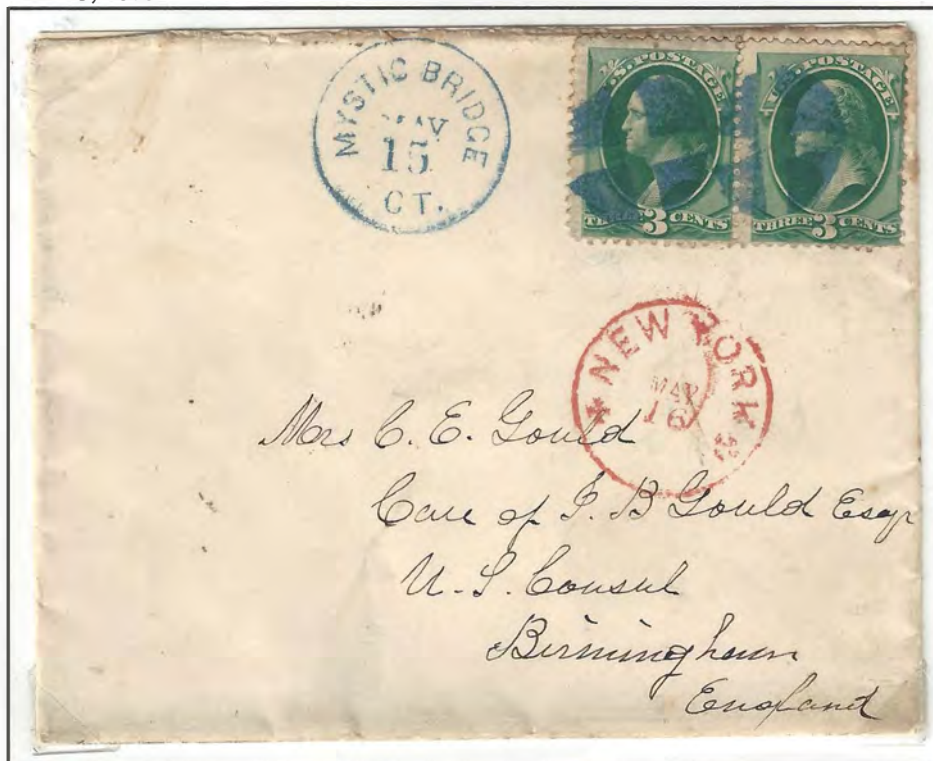 MYSTIC BRIDGE
MAY
15
CT.
U.S. POSTAGE
THREE 3 CENTS
U.S. POSTAGE
THREE 3 CENTS
NEW YORK
MAY
16
Mrs C. E. Gould
Care of J. B Gould Esqr
U. S. Consul
Birmingham
England